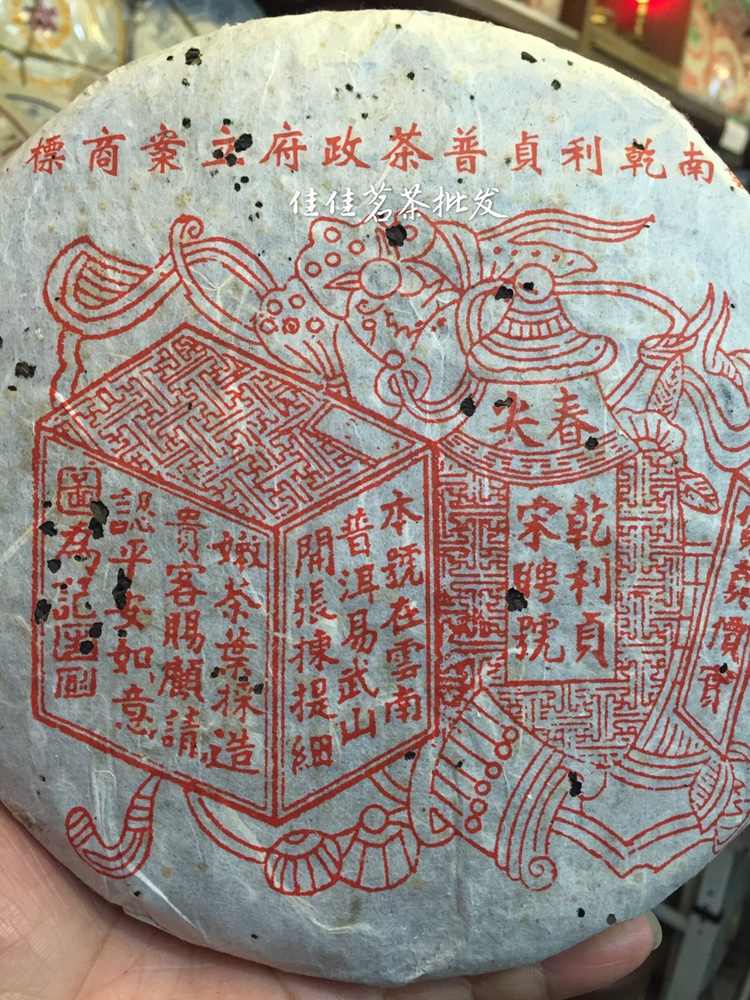 南乾利貞普茶政府立案商標
佳佳茗茶批发
春尖
乾利貞
宋聘號
本號在雲南
普洱易武山
開張揀提細
嫩茶葉採造
貴客賜顧請
認平安如意
圖為記
價實